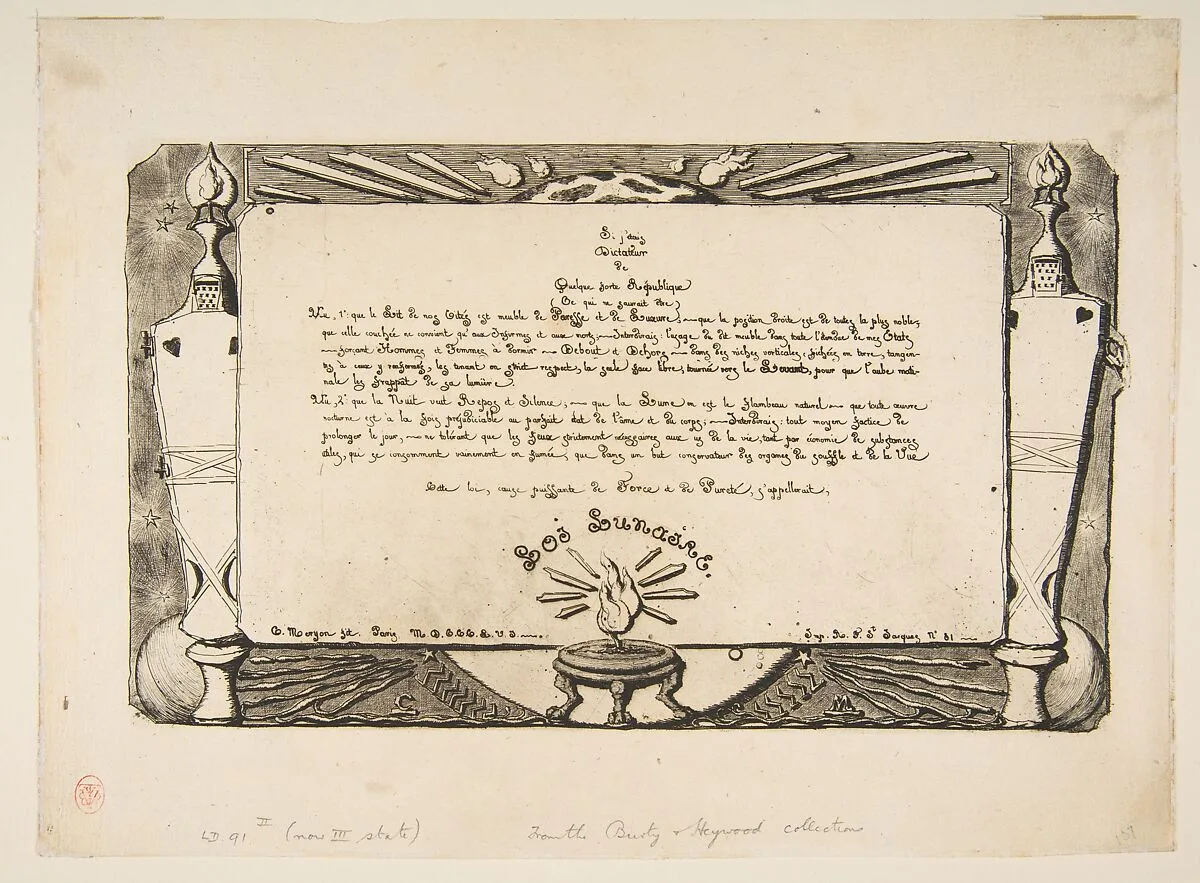 Si j'étais
Dictateur
de
Quelque forte République
(Ce qui ne saurait être)
Vu, 1° que le Lit de nos Cités est meuble de Paresse et de Luxure; que la position droite est de toutes la plus noble;
que celle couchée ne convient qu'aux Infirmes et aux morts; Interdirais: l'usage du dit meuble dans toute l'étendue de mes États
forçant Hommes et Femmes à dormir Debout et Dehors dans des niches verticales; fichées en terre, tangen-
tes à ceux y renfermés, les tenant en strict respect, la seule face libre, tournée vers le Levant, pour que l'aube mati-
nale les frappât de sa lumière.
Vu, 2° que la Nuit veut Repos et Silence; que la Lune en est le flambeau naturel que toute œuvre
nocturne est à la fois préjudiciable au parfait état de l'âme et du corps; Interdirais: tout moyen factice de
prolonger le jour, ne tolérant que les feux strictement nécessaires aux us de la vie, tant par économie de substances
utiles, qui se consomment vainement en fumée, que dans un but conservateur des organes du souffle et de la Vue
Cette loi, cause puissante de Force et de Pureté, s'appellerait,
Loi Lunaire.
C. Meryon fit. Paris M D CCC L V I
Imp. R. F. St Jacques, N° 81
C M
LD. 91 II (now III state)
From the Burty & Heywood collections